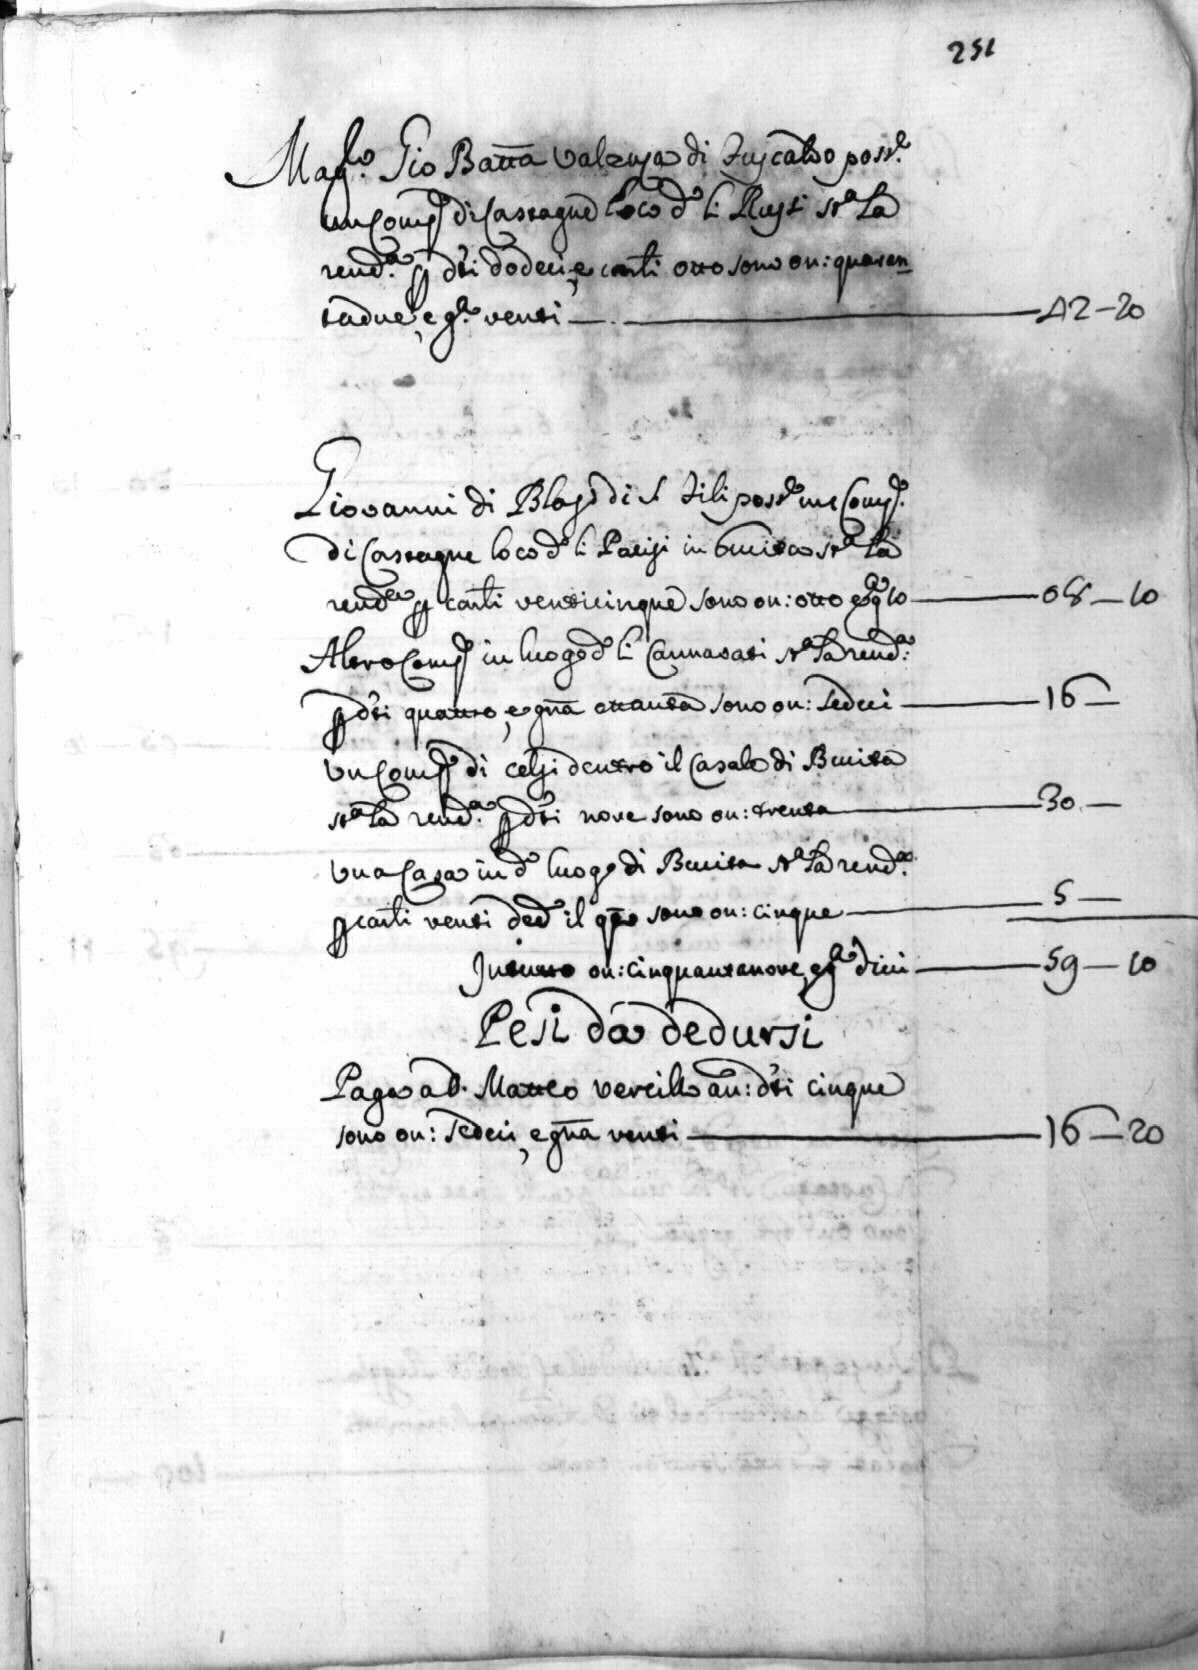 251
Mag.co Gio Batta Valenza di Fuscaldo poss.e
un Comp.o di Castagne loco d.o li Rusti st.a la
rend.a p d.ti dodeci, e carli otto sono on: quaran
tadue, e g.a venti — 42-20
Giovanni di Blasi di S. Fili poss.e un Comp.o
di Castagne loco d.o li Parisi in Bucita st.a la
rend.a p carli venticinque sono on: otto e g.a 10 — 08-10
Altro Comp.o in luogo d.o li Cannavati st.a la rend.a
p d.ti quattro, e gna ottanta sono on: sedeci — 16 —
Un Comp.o di celsi dentro il Casale di Bucita
st.a la rend.a p d.ti nove sono on: trenta — 30 —
Una Casa in d.o luogo di Bucita st.a la rend.a
p carli venti ded.o il q.to sono on: cinque — 5 —
In tutto on: cinquantanove, e g.a dieci — 59-10
Pesi da dedursi
Paga a D. Matteo Vercillo an: d.ti cinque
sono on: sedeci, e gna venti — 16-20